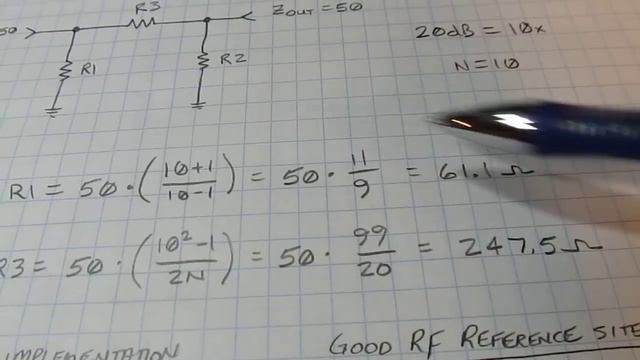 R3
50
ZOUT = 50
20dB = 10x
R1
R2
N = 10
R1 = 50 · (10+1 / 10-1) = 50 · 11/9 = 61.1Ω
R3 = 50 · (10²-1 / 2N) = 50 · 99/20 = 247.5Ω
IMPLEMENTATION
GOOD RF REFERENCE SITE